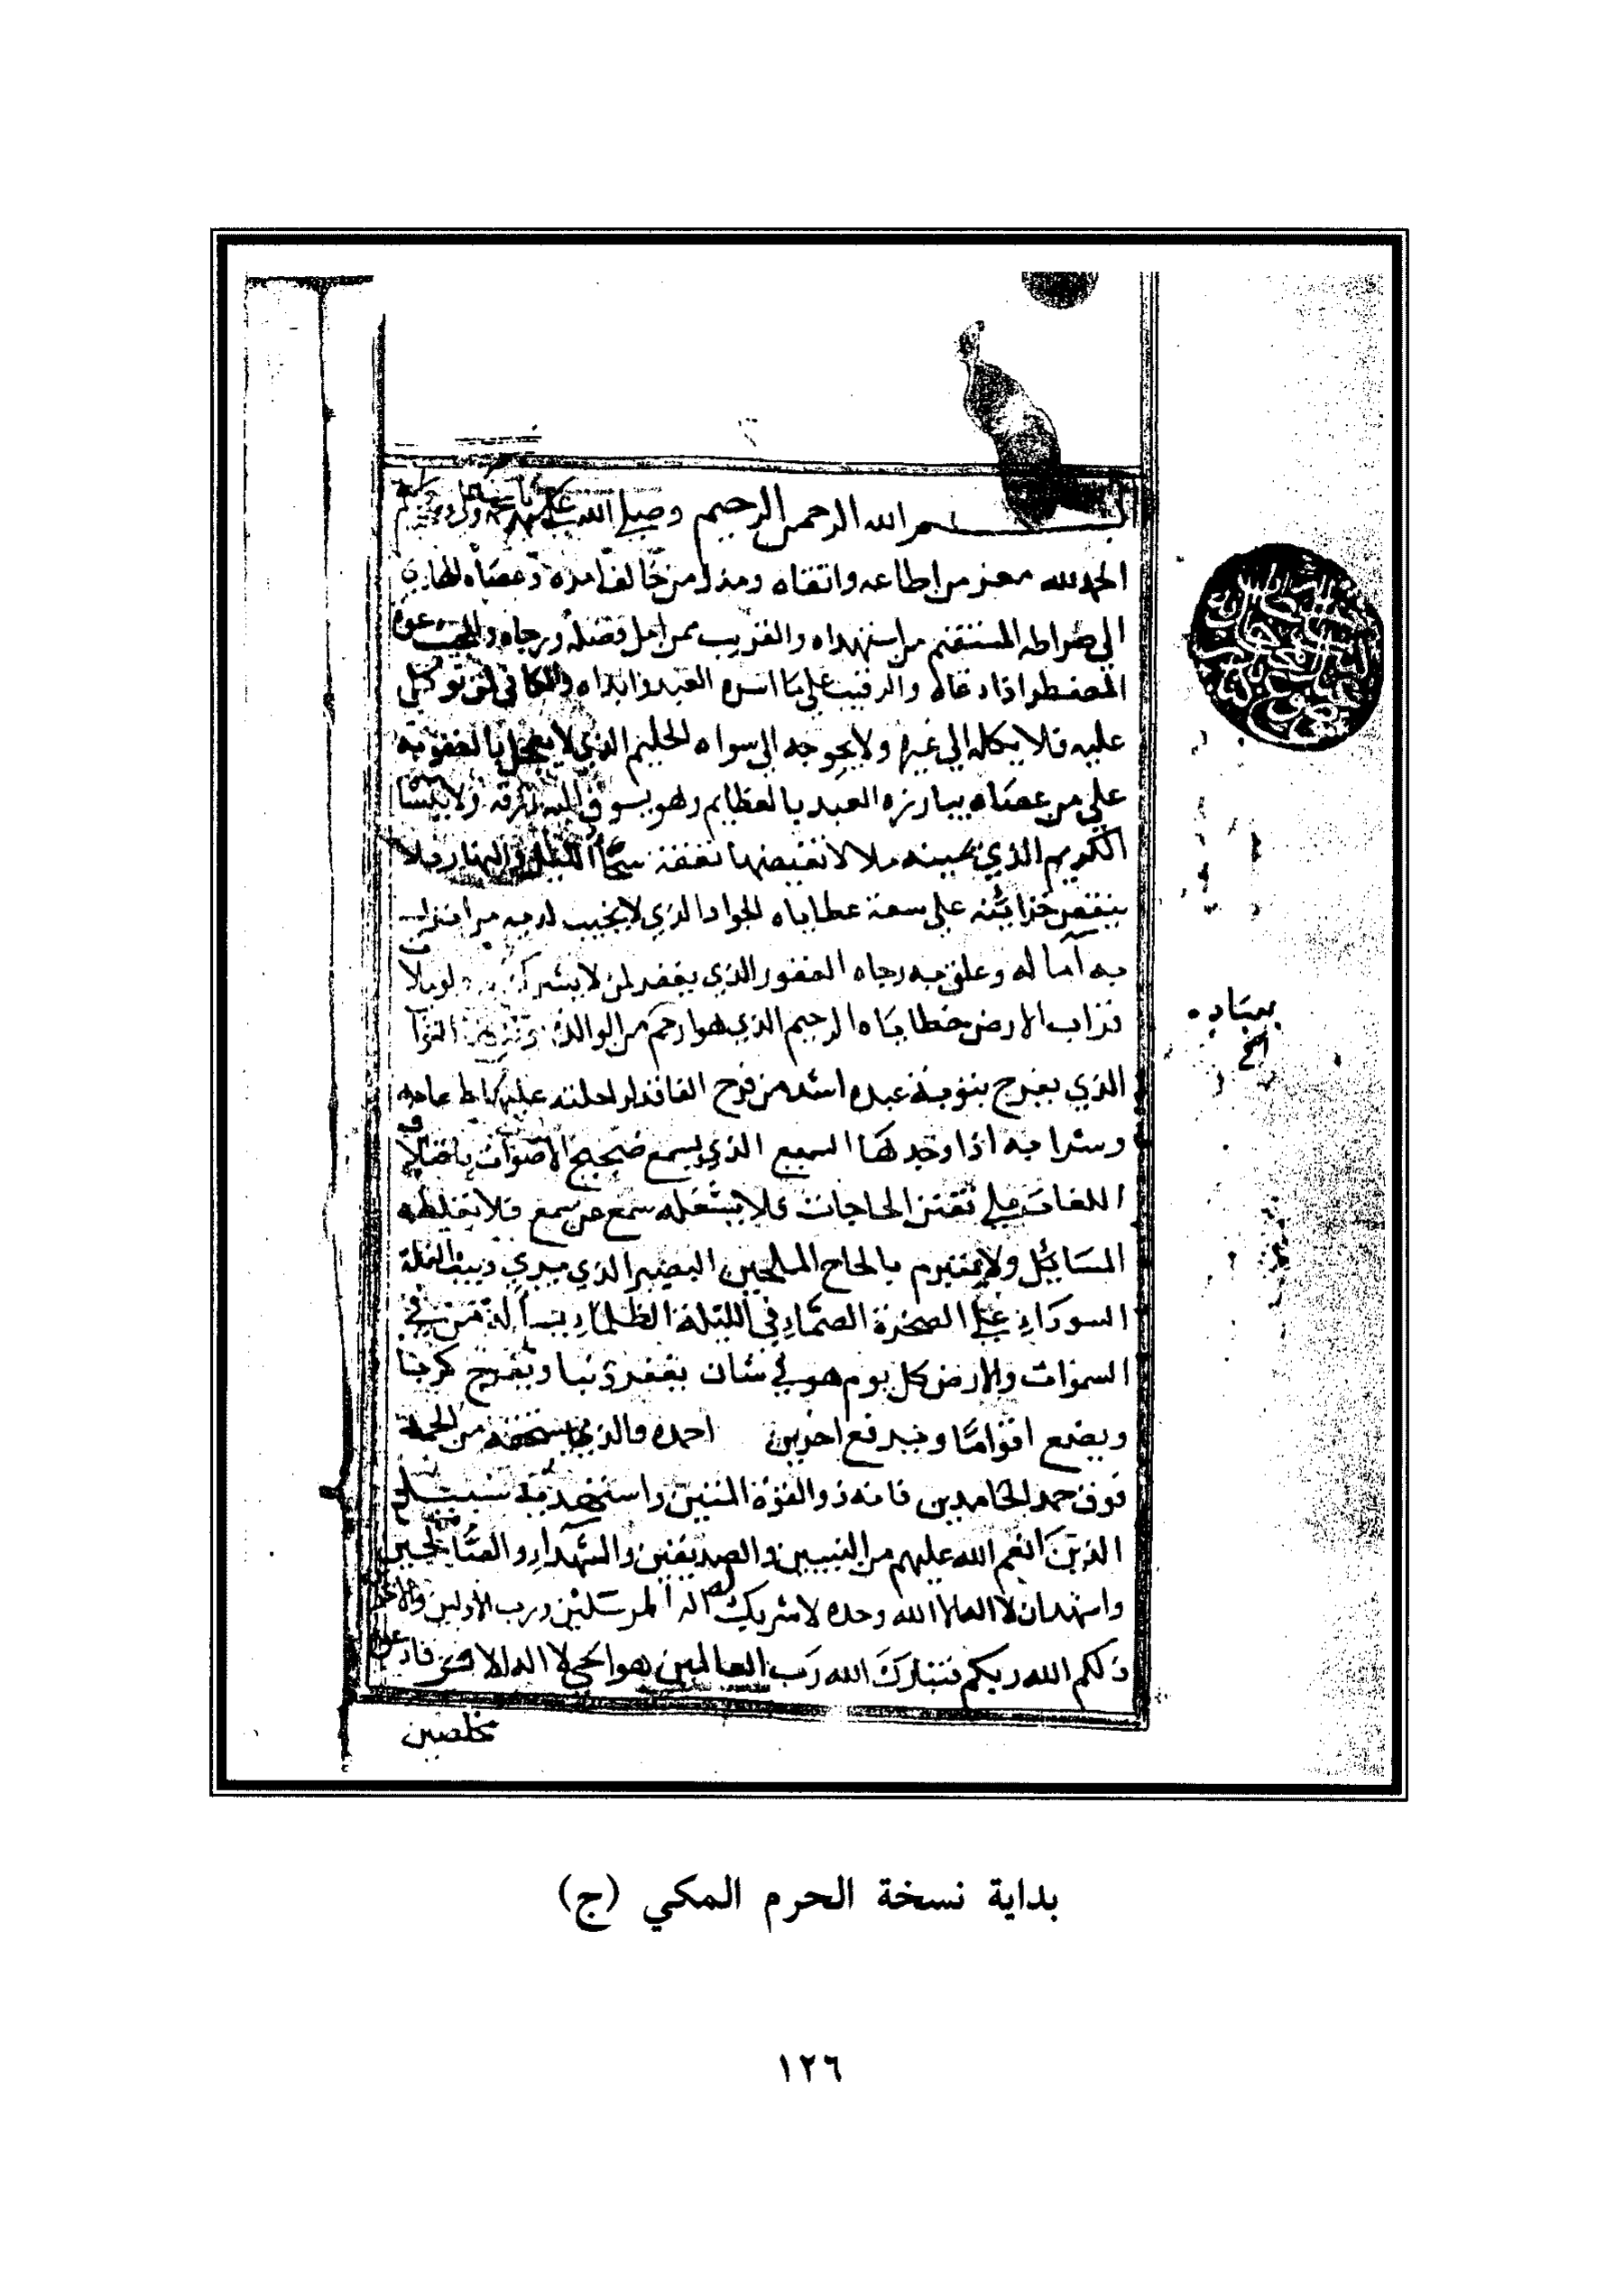 بسم الله الرحمن الرحيم وصلى الله على
الحمد لله معز من اطاعه واتقاه ومذل من خالف امره وعصاه الهادي
الى صراطه المستقيم من استهداه والقريب ممن امل فضله ورجاه والمجيب دعوة
المضطر اذا دعاه والرقيب على ما اسره العبد وابداه والكافي لمن توكل
عليه فلا يكله الى غيره ولا يحوجه الى سواه الحليم الذي لا يعجل بالعقوبة
على من عصاه يبارزه العبد بالعظايم وهو يسوق اليه رزقه ولا ينسا
الكريم الذي يمينه ملا لا تغيضها نفقة سحا الليل والنهار ولا
ينقص خزائنه على سعة عطاياه الجواد الذي لا يخيب لديه من انزل
به آماله وعلق به رجاه الغفور الذي يغفر لمن لا يشرك ولو ملا
قراب الارض خطاياه الرحيم الذي هو ارحم من الوالدة التوا
الذي يفرح بتوبة عبده اشد من فرح الفاقد لراحلته عليها طعامه
وشرابه اذا وجدها السميع الذي يسمع ضجيج الاصوات باختلاف
اللغات على تفنن الحاجات فلا يشغله سمع عن سمع فلا تغلطه
المسائل ولا يتبرم بالحاح الملحين البصير الذي يرى دبيب النملة
السوداء على الصخرة الصماء في الليلة الظلماء يسأله من في
السموات والارض كل يوم هو في شان يغفر ذنبا ويفرج كربا
ويضع اقواما ويرفع اخرين احمده والذي يستحقه من الحمد
فوق حمد الحامدين فانه ذو القوة المتين واستهديه سبيل
الذين انعم الله عليهم من النبيين والصديقين والشهداء والصالحين
واشهد ان لا اله الا الله وحده لا شريك له اله المرسلين ورب الاولين والاخر
ذلكم الله ربكم فتبارك الله رب العالمين هو الحي لا اله الا هو فادعوه
مخلصين
بداية نسخة الحرم المكي (ج)
١٢٦